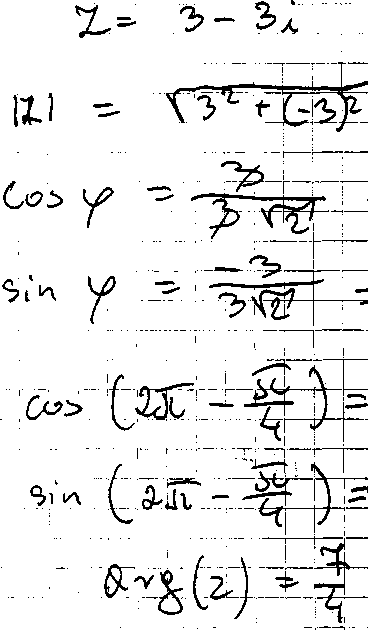 z = 3 - 3i
|z| = √3² + (-3)²
cos φ = 3 / 3√2
sin φ = -3 / 3√2 =
cos (2π - π/4) =
sin (2π - π/4) =
arg(z) = 7/4